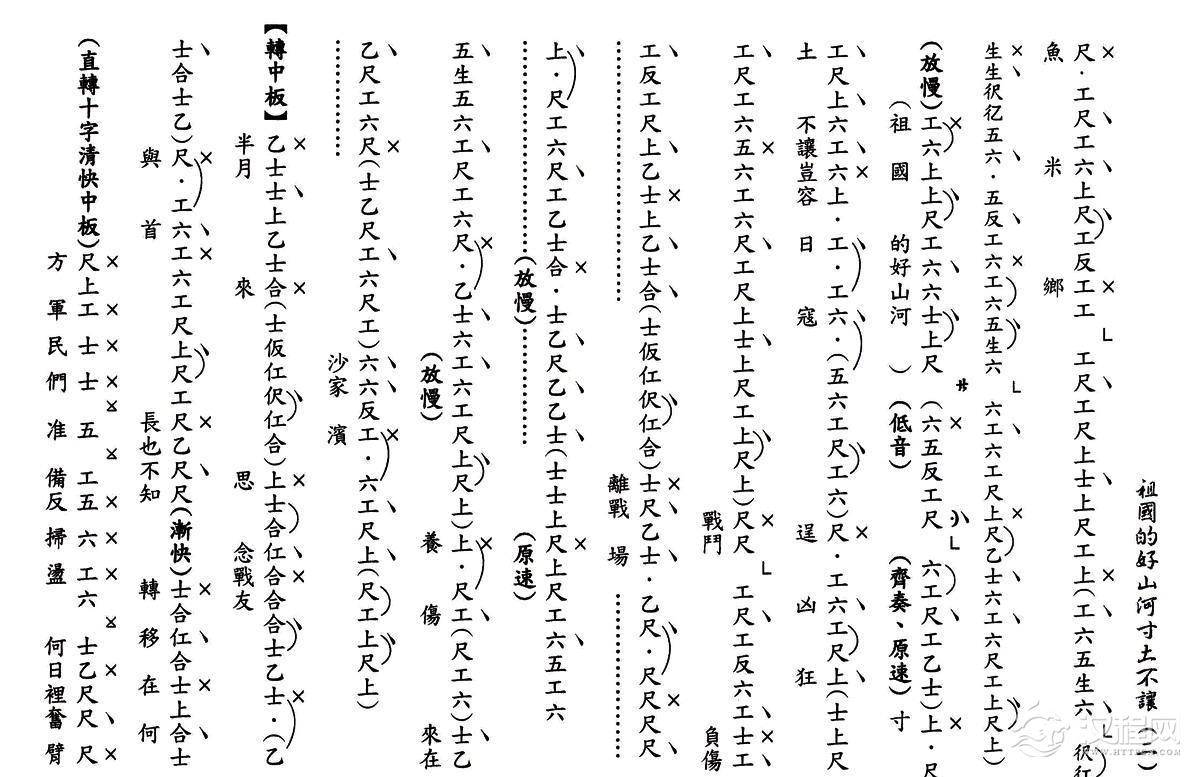 祖國的好山河寸土不讓（二）
尺・工尺工六上尺工反工工 工尺工尺上士上尺工上(工六五生六 伬仜
魚米鄉
生生伬亿五六・五反工六工六五生六 六工六工尺上尺乙士六工六尺工上尺上)
(放慢)工六上上尺工六六士上尺(六五反工尺 六工尺工乙士)上・尺
(祖國的好山河)(低音)(齊奏、原速)寸
工尺上六工六上・工・工六・(五六工尺工六)尺・工六工尺上(士上尺
土不讓豈容日寇逞凶狂
工尺工六五六工六尺工尺上士上尺工上尺上)尺尺 工尺工反六工士工
戰鬥負傷
工反工尺上乙士上乙士合(士仮仜伬仜合)士尺乙士・乙尺・尺尺尺尺
離戰場
上・尺工六尺工乙士合・士乙尺乙乙士(士士上尺上尺工六五工六
(放慢)(原速)
五生五六工尺工六尺・乙士六工六工尺上尺上)上・尺工(尺工六)士乙
(放慢)養傷來在
乙尺工六尺(士乙尺工六尺工)六六反工・六工尺上(尺工上尺上)
沙家濱
【轉中板】乙士士上乙士合(士仮仜伬仜合)上士合仜合合合士乙士・(乙
半月來思念戰友
士合士乙)尺・工六工六工尺上尺工尺乙尺尺(漸快)士合仜合士上合士
與首長也不知轉移在何
(直轉十字清快中板)尺上工士士五工五六工六士乙尺尺尺
方軍民們准備反掃盪何日裡奮臂
汉程网
WWW.HTTPCN.COM